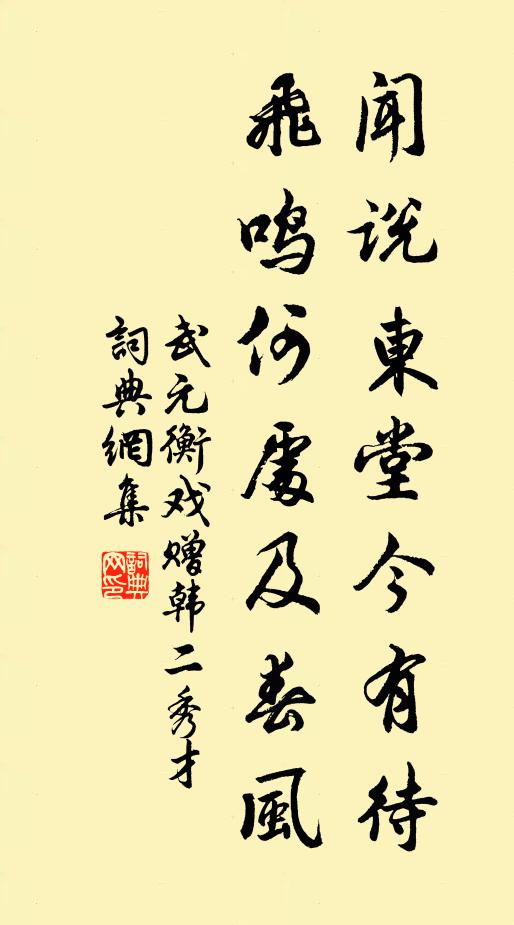 闻说東堂今有待
飛鸣何處及春風
武元衡戏赠韩二秀才
詞典網集
詞典网印